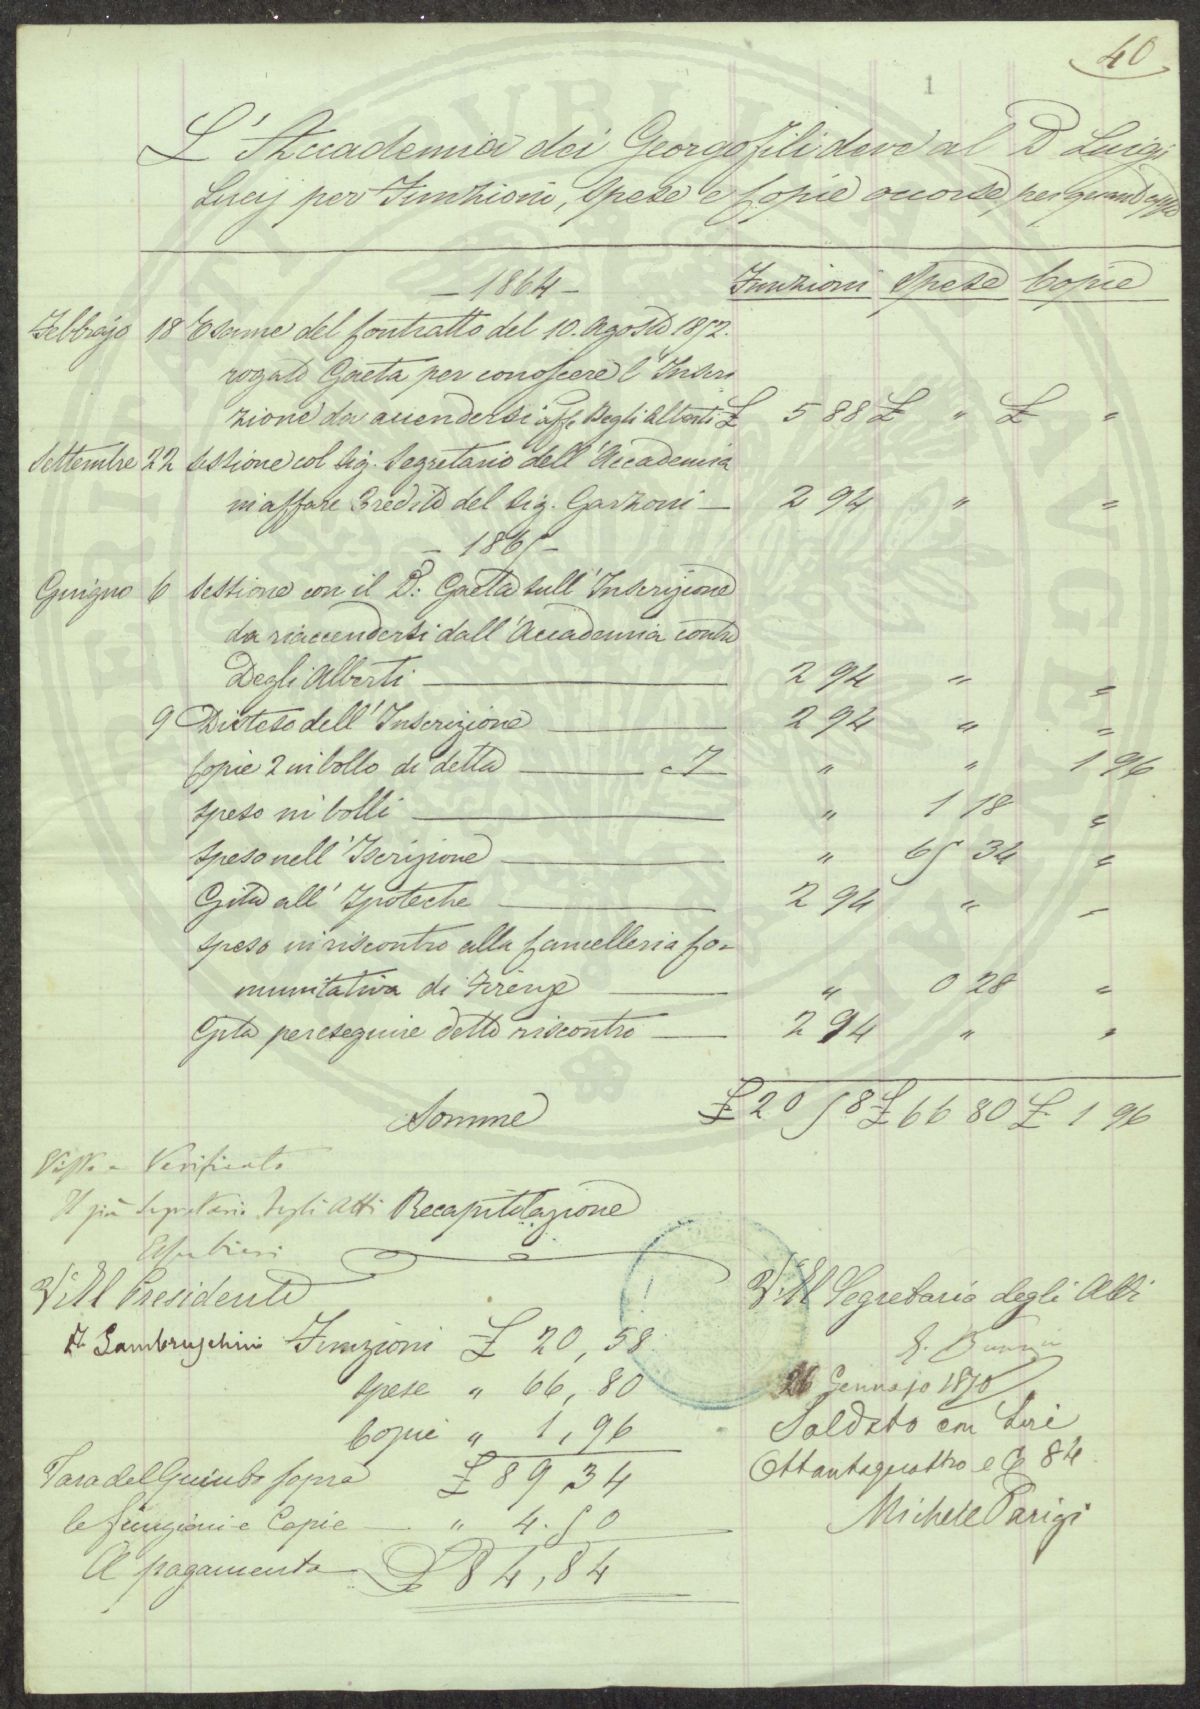 40
1
L'Accademia dei Georgofili deve al D Luigi
Lucij per Funzioni, Spese e Copie occorse, per quanto appo
- 1864 -
Funzioni Spese Copie
Febbrajo 18 Esame del Contratto del 10. Agosto 1852.
rogato Gaeta per conoscere l'Inscri
zione da accendersi aff. Degli Alberti £ 5 88 £ " £ "
Settembre 22 Sessione col Sig. Segretario dell'Accademia
in affare Eredità del Sig. Garzoni — 2 94 " "
- 1865 -
Giugno 6 Sessione con il D: Gaeta sull'Inscrizione
da riaccendersi dall'Accademia contro
Degli Alberti — 2 94 " "
9 Disteso dell'Inscrizione — 2 94 " "
Copie 2 in bollo di detta — 7 " " 1 96
Speso in bolli — " 1 18 "
Speso nell'Iscrizione — " 65 34 "
Gita all'Ipoteche — 2 94 " "
Speso in riscontro alla Cancelleria Co-
munitativa di Firenze — " 0 28 "
Gita per eseguire detto riscontro — 2 94 " "
Somme £ 20 58 £ 66 80 £ 1 96
Visto e Verificato
Il più Segretario degli Atti
Recapitolazione
V. Il Presidente
V. Il Segretario degli Atti
R. Lambruschini
Funzioni £ 20,58
26 Gennajo 1870
Spese " 66,80
Saldato con Lire
Copie " 1,96
Ottantaquattro e C 84
Tara del Quinto sopra £ 89,34
Michele Parigi
le funzioni e Copie — " 4.50
A pagamento £ 84,84